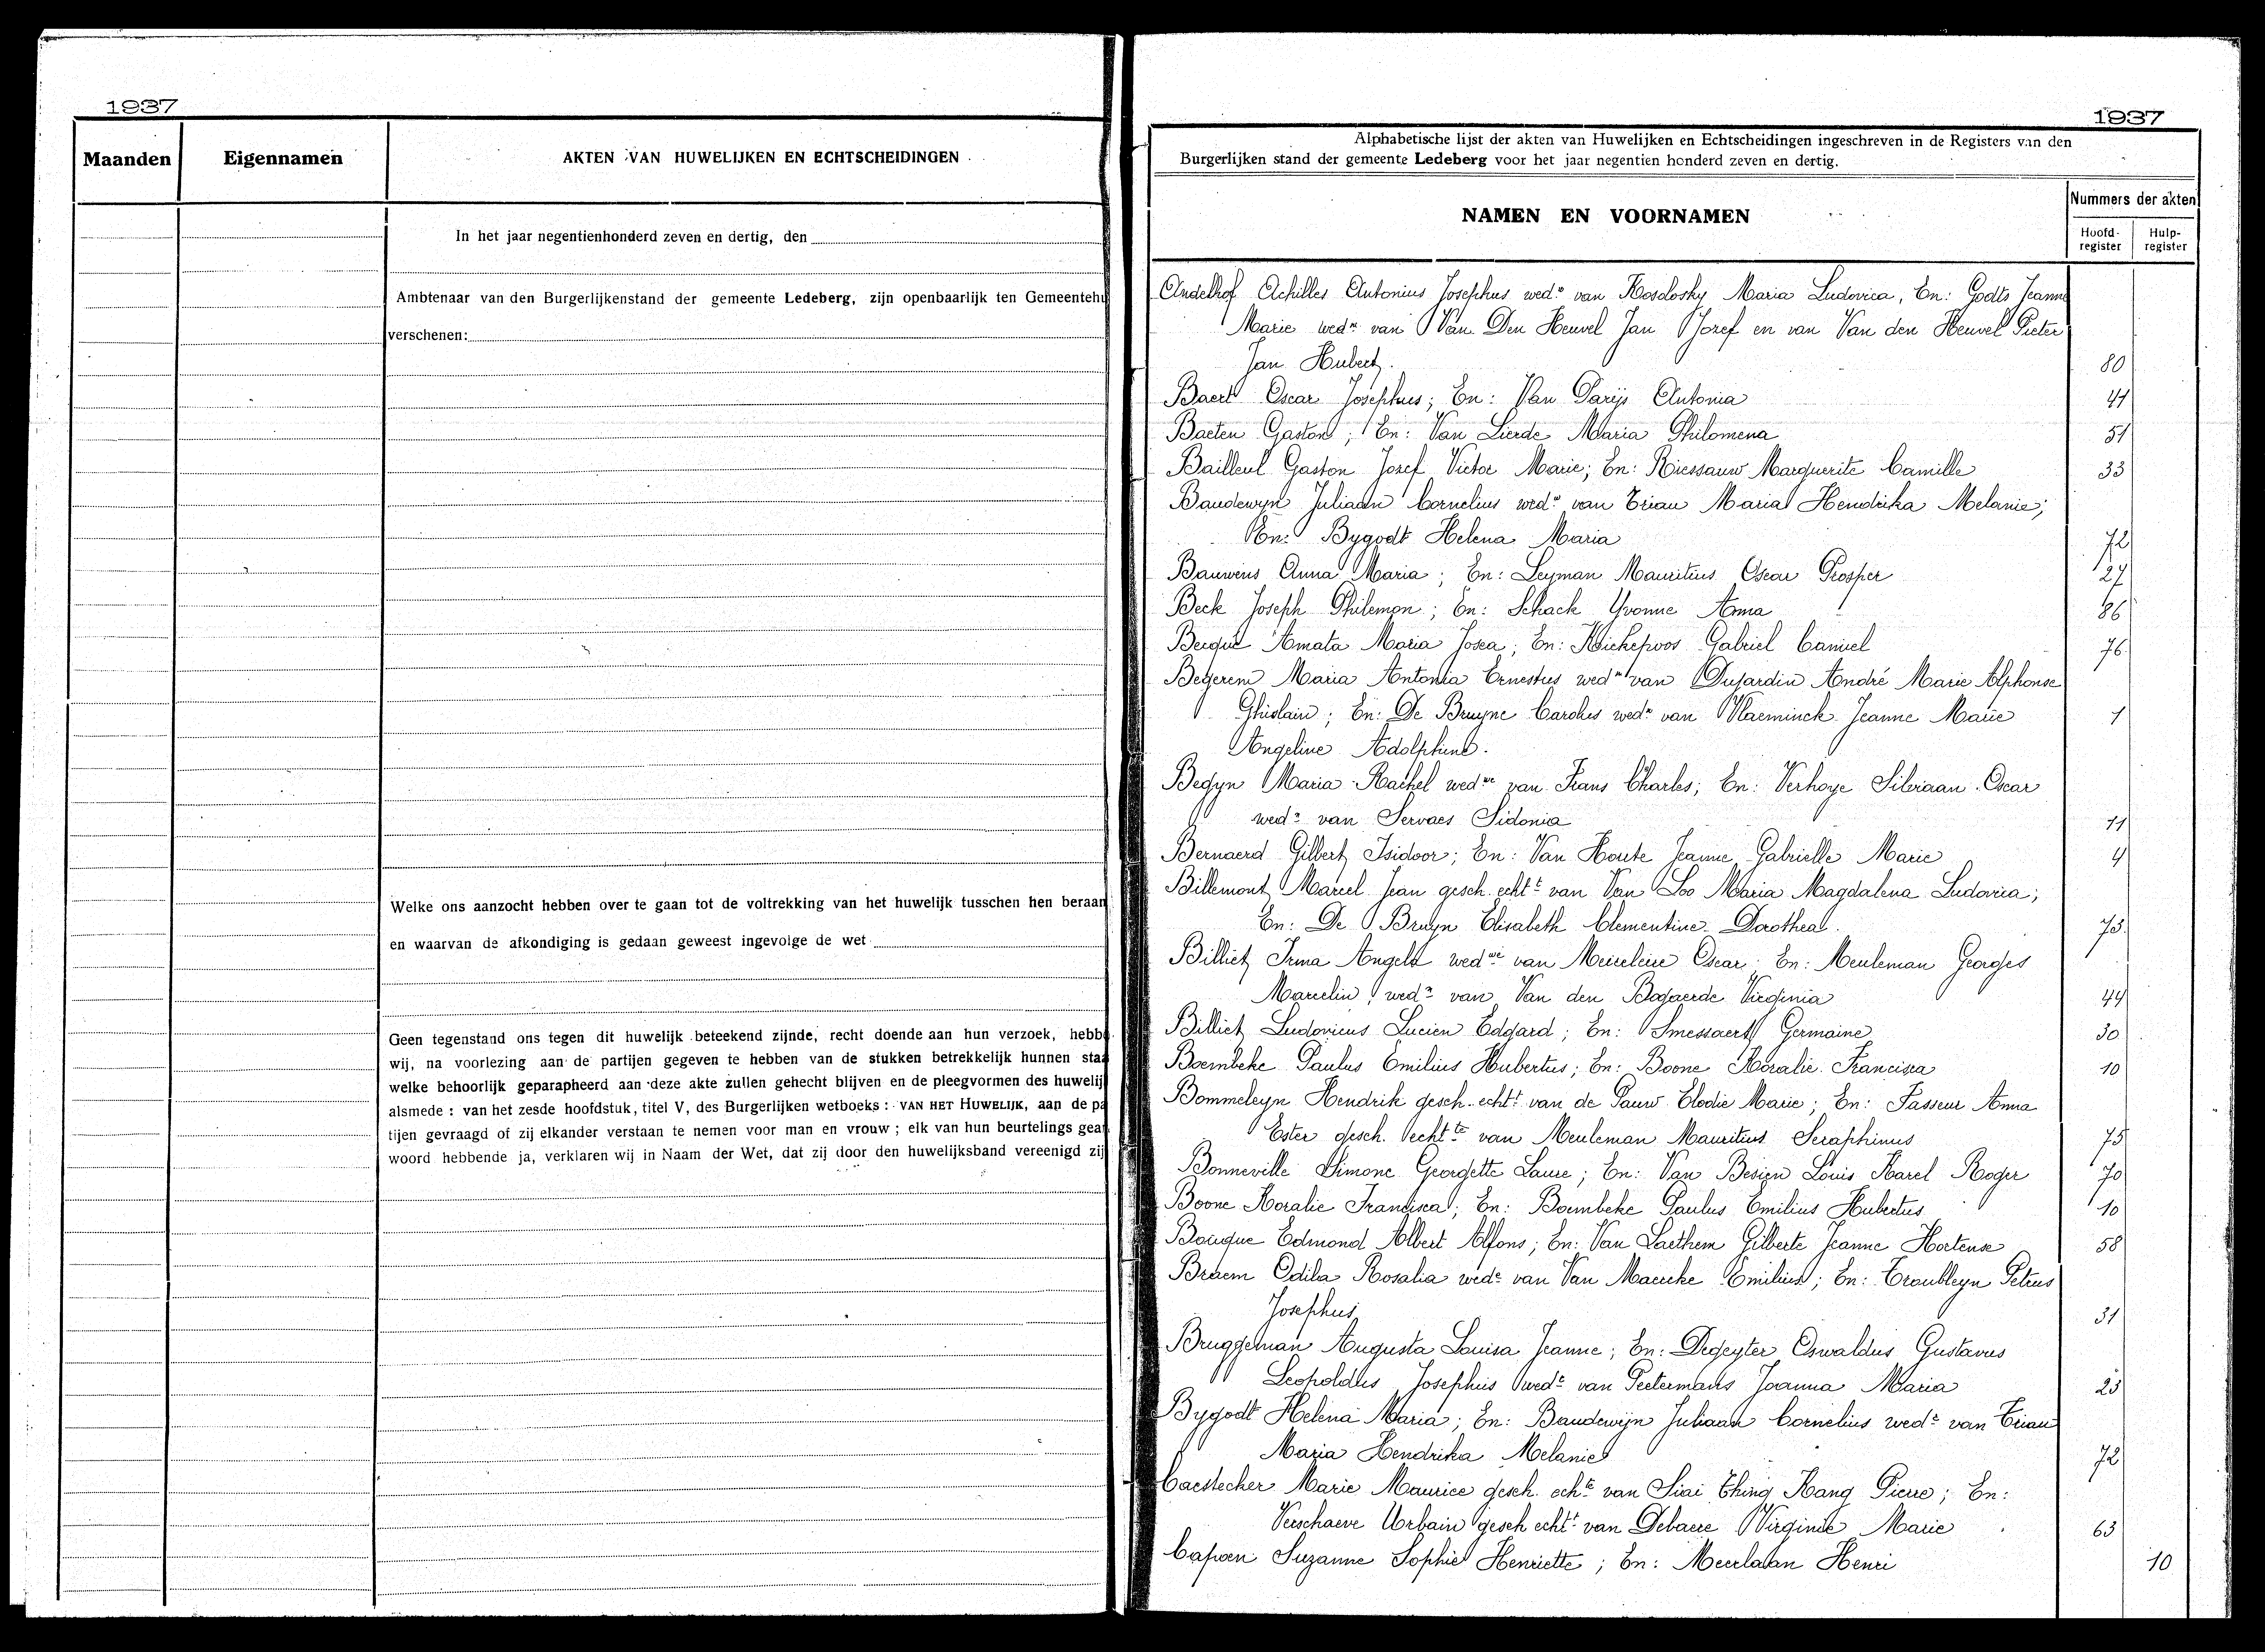 1937
Maanden
Eigennamen
AKTEN VAN HUWELIJKEN EN ECHTSCHEIDINGEN
In het jaar negentienhonderd zeven en dertig, den
Ambtenaar van den Burgerlijkenstand der gemeente Ledeberg, zijn openbaarlijk ten Gemeentehu
verschenen:
Welke ons aanzocht hebben over te gaan tot de voltrekking van het huwelijk tusschen hen beraam
en waarvan de afkondiging is gedaan geweest ingevolge de wet
Geen tegenstand ons tegen dit huwelijk beteekend zijnde, recht doende aan hun verzoek, hebb
wij, na voorlezing aan de partijen gegeven te hebben van de stukken betrekkelijk hunnen staa
welke behoorlijk geparapheerd aan deze akte zullen gehecht blijven en de pleegvormen des huwelij
alsmede : van het zesde hoofdstuk, titel V, des Burgerlijken wetboeks : VAN HET HUWELIJK, aan de pa
tijen gevraagd of zij elkander verstaan te nemen voor man en vrouw ; elk van hun beurtelings gean
woord hebbende ja, verklaren wij in Naam der Wet, dat zij door den huwelijksband vereenigd zij
1937
Alphabetische lijst der akten van Huwelijken en Echtscheidingen ingeschreven in de Registers van den
Burgerlijken stand der gemeente Ledeberg voor het jaar negentien honderd zeven en dertig.
NAMEN EN VOORNAMEN
Nummers der akten
Hoofd-register
Hulp-register
Andelhof Achilles Antonius Josephus wedr van Koslosky Maria Ludovica, En: Godts Jeanne
Marie wedw van Van Den Heuvel Jan Jozef en van Van den Heuvel Pieter
Jan Hubert. 80
Baert Oscar Josephus; En: Van Parijs Antonia 41
Baeten Gaston; En: Van Lierde Maria Philomena 51
Bailleul Gaston Josef Victor Marie; En: Riessauw Marguerite Camille 33
Baudewyn Juliaan Cornelius wedr van Triau Maria Hendrika Melanie;
En: Bygodt Helena Maria 72
Bauwens Anna Maria; En: Leyman Mauritius Oscar Prosper 27
Beck Joseph Philemon; En: Schack Yvonne Anna 86
Becqué Amata Maria Josea; En: Kiekepoos Gabriel Camiel 76
Begerem Maria Antonia Ernestus wedw van Dujardin André Marie Alphonse
Ghislain; En: De Bruyne Carolus wedr van Vlaeminck Jeanne Marie 1
Angeline Adolphine.
Begyn Maria Rachel wedwe van Frans Charles; En: Verhoye Silviaan Oscar
wedr van Servaes Sidonia 11
Bernaerd Gilbert Isidoor; En: Van Houte Jeanne Gabrielle Marie 4
Billemont Marcel Jean gesch. echtt van Van Loo Maria Magdalena Ludovica;
En: De Bruyn Elisabeth Clementine Dorothea. 73
Billiet Irma Angela wedwe van Meireleire Oscar; En: Meuleman Georges
Marcelin wedr van Van den Bogaerde Virginia 44
Billiet Ludovicus Lucien Edgard; En: Smessaert Germaine 30
Boembeke Paulus Emilius Hubertus; En: Boone Rosalie Francisca 10
Bommeleyn Hendrik gesch. echtt van de Pauw Elodie Marie; En: Fasseur Anna
Ester gesch. echtte van Meuleman Mauritius Seraphinus 75
Bonneville Simone Georgette Laure; En: Van Besien Louis Karel Roger 70
Boone Rosalie Francisca; En: Boembeke Paulus Emilius Hubertus 10
Bouque Edmond Albert Alfons; En: Van Laethem Gilberte Jeanne Hortense 58
Braem Odila Rosalia wede van Van Maercke Emilius; En: Troubleyn Petrus
Josephus 31
Bruggeman Augusta Louisa Jeanne; En: Degeyter Oswaldus Gustavus
Leopoldus Josephus wedr van Peetermans Joanna Maria 23
Bygodt Helena Maria; En: Baudewijn Juliaan Cornelius wedr van Triau
Maria Hendrika Melanie 72
Caestecker Marie Maurice gesch. echte van Siai Thing Kang Pierre; En:
Verschaeve Urbain gesch echtt van Debaere Virginie Marie 63
Capoen Suzanne Sophie Henriette; En: Meerlaan Henri 10